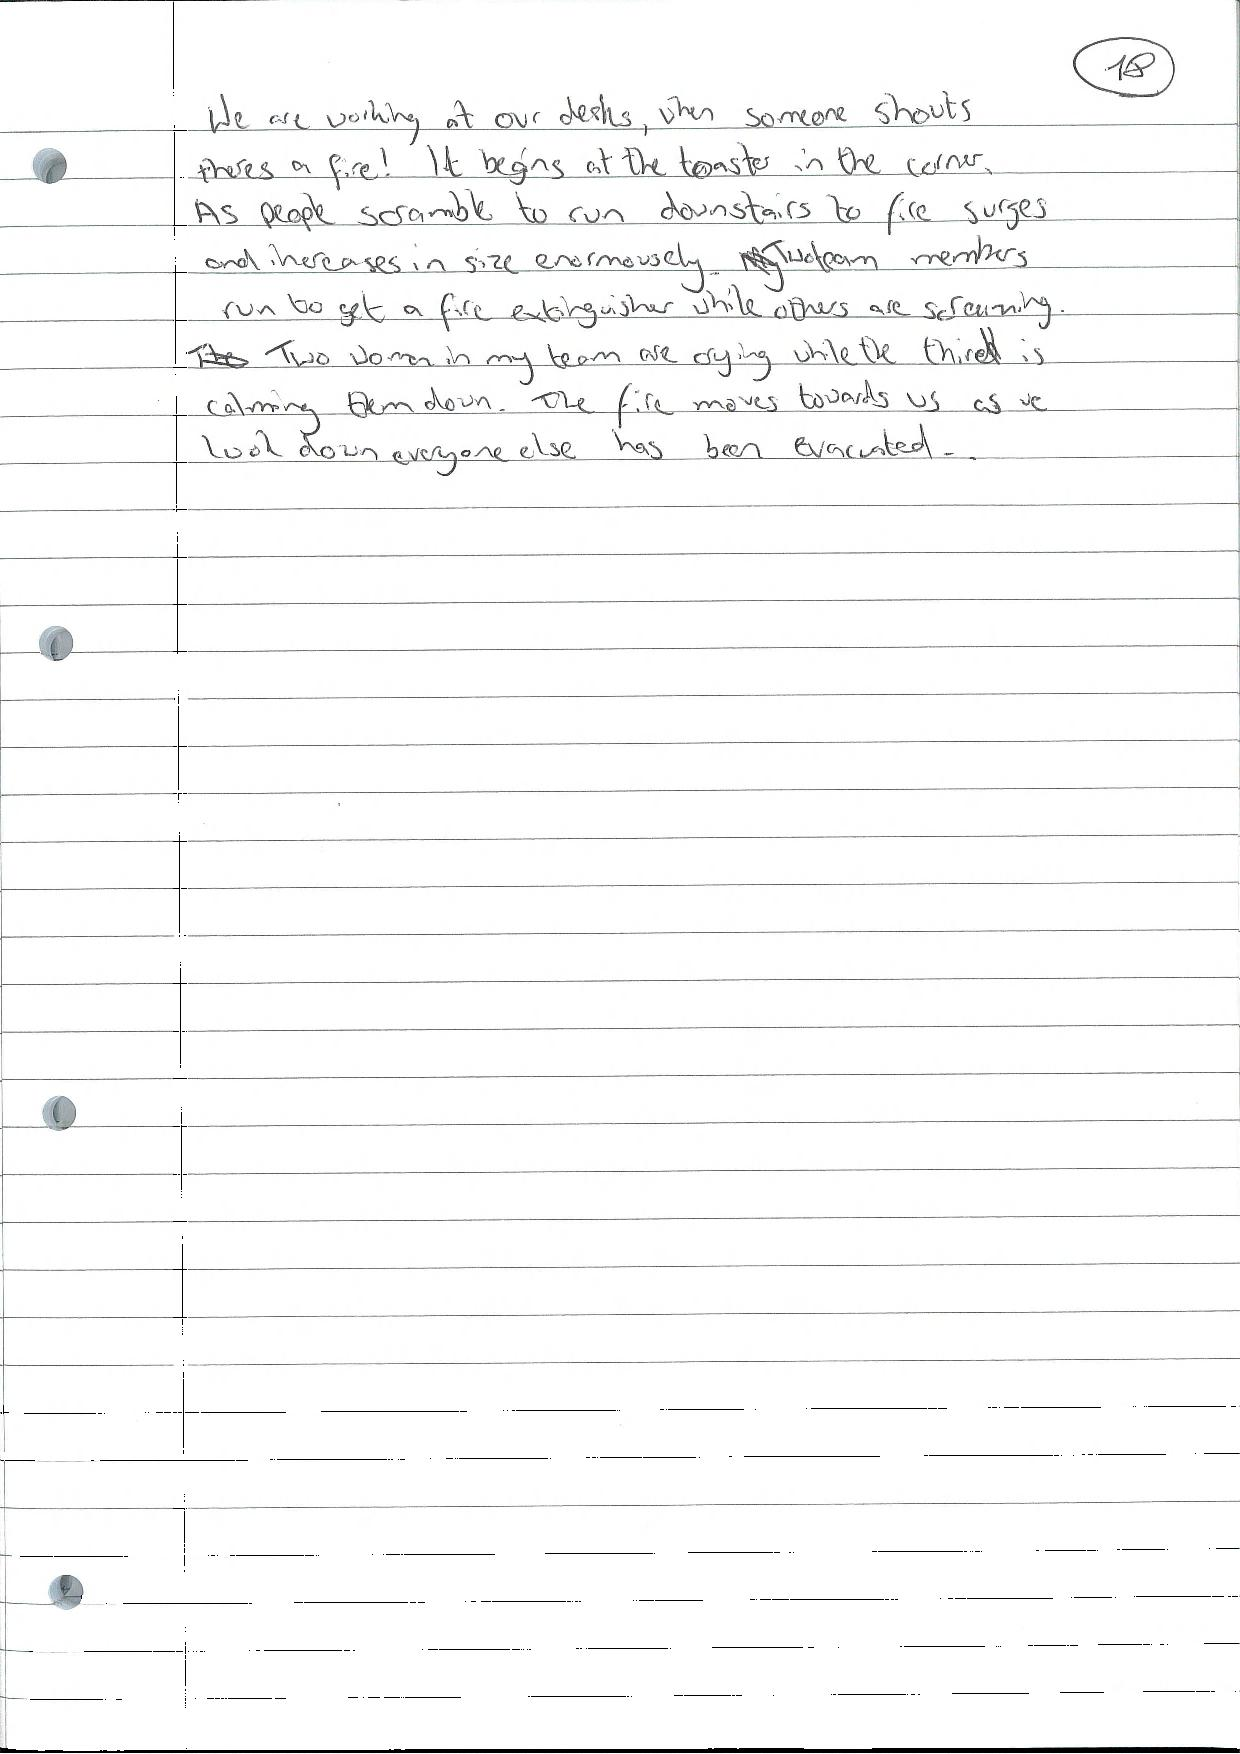 18
We are working at our desks, when someone shouts
theres a fire! It begins at the toaster in the corner.
As people scramble to run downstairs to fire surges
and increases in size enormousely. Two team members
run to get a fire extinguisher while others are screaming.
The Two women in my team are crying while the third is
calming them down. The fire moves towards us as we
look down everyone else has been evacuated.